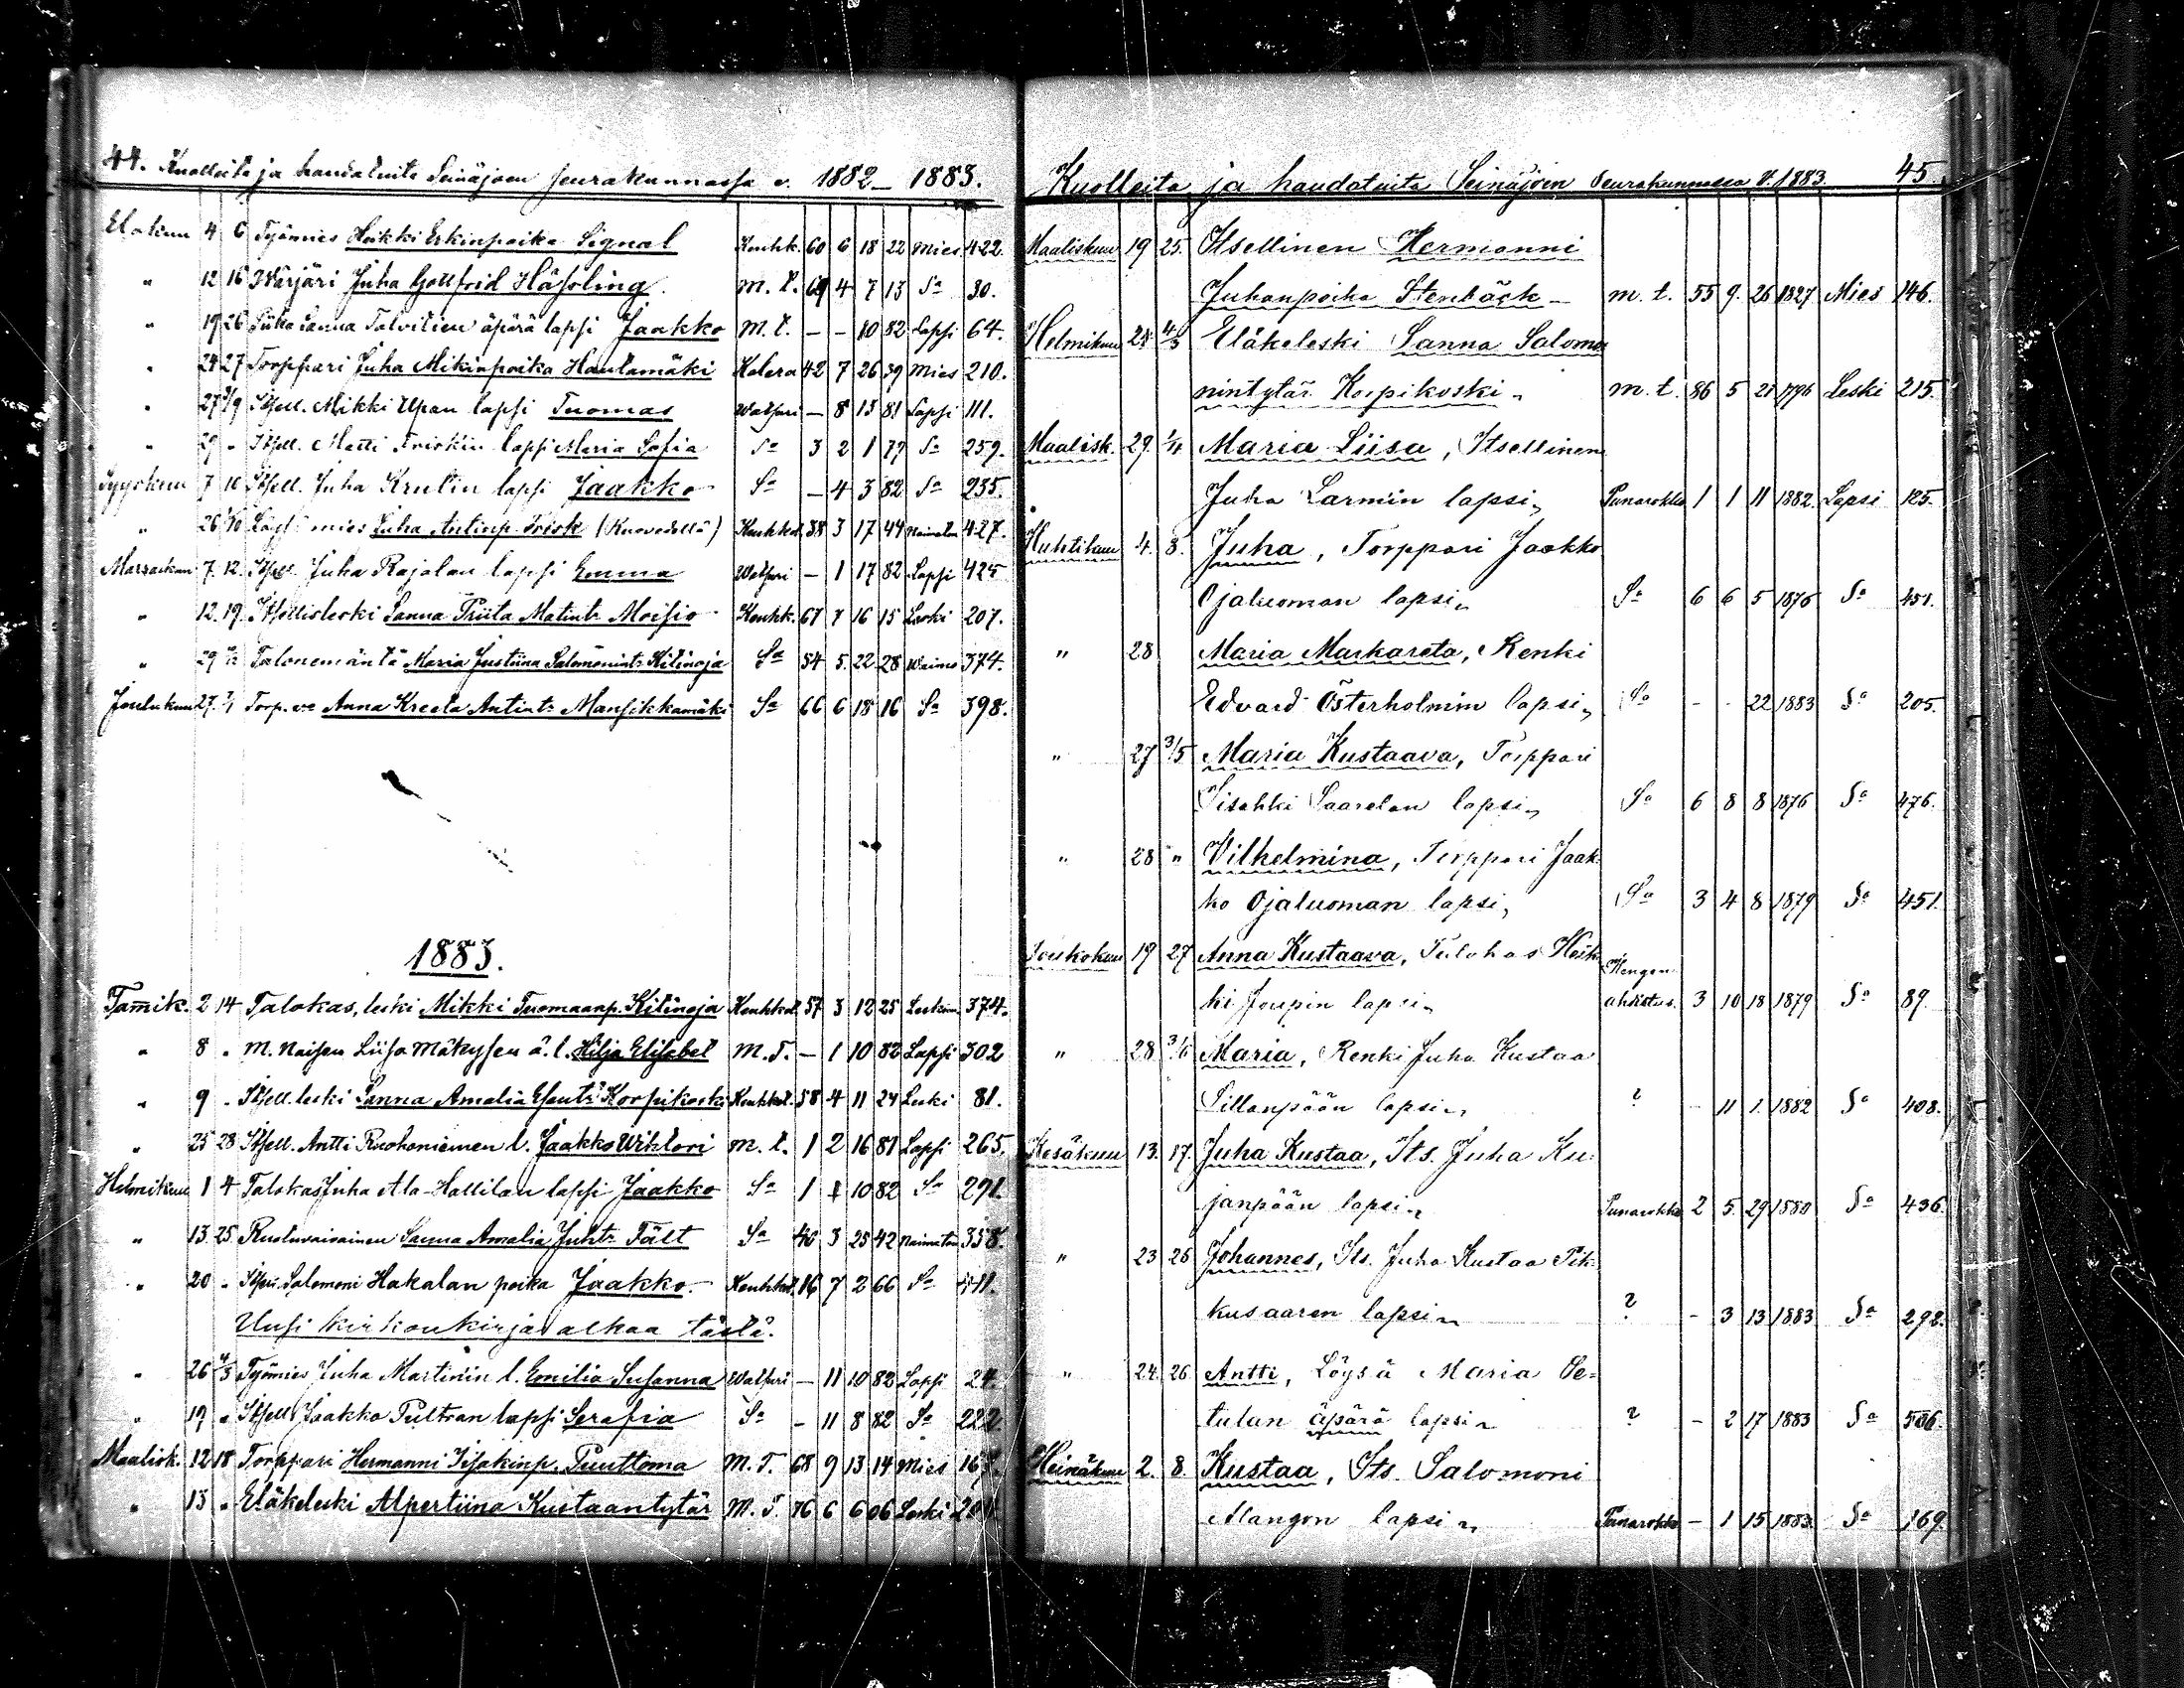 44. Kuolleita ja haudatuita Seinäjoen seurakunnassa v. 1882 – 1883.
Elokuu 4 6 Työmies Heikki Erkinpoika Signal Keuhk. 60 6 18 22 Mies 422.
" 12 16 Wärjäri Juha Gottfrid Häszling. M. t. 69 4 7 13 Sa 30.
" 19 26 Piika Sanna Talvitien äpärä lapsi Jaakko M. t. – – 10 82 Lapsi 64.
" 24 27 Torppari Juha Mikinpoika Hautamäki Kolera 42 7 26 39 Mies 210.
" 27 3/9 Itsell. Mikki Upan lapsi Tuomas Watsuri – 8 13 81 Lapsi 111.
" 29 " Itsell. Matti Friskin lapsi Maria Sofia Sa 3 2 1 79 Sa 259.
Syyskuu 7 10 Itsell. Juha Krulin lapsi Jaakko Sa – 4 3 82 Sa 235.
" 26 1/10 mies Juha Antinp. Frisk (Ruovedellä) Keuhkot. 38 3 17 44 Naimaton 427.
Marraskuu 7. 12. Itsell. Juha Rajalan lapsi Emma Watsuri – 1 17 82 Lapsi 425
" 12. 19. Itsellisleski Sanna Priita Matintr Moisio Keuhk. 67 7 16 15 Leski 207.
" 29 Talonemäntä Maria Justiina Salomonintr Kitinoja Sa 54 5. 22 28 Waimo 374.
Joulukuu 27. Torp. vo Anna Kreeta Antintr Mansikkamäki Sa 66 6 18 16 Sa 398.
1883.
Tammik. 2 14 Talokas, leski Mikki Tuomaanp. Kitinoja Keuhkot. 57 3 12 25 Leskim. 374.
" 8 " M. Naisen Liisa Mäkysen ä. l. Hilja Elisabet M. T. – 1 10 82 Lapsi 302
" 9 " Itsell. leski Sanna Amalia Korpikoski Keuhkot. 58 4 11 24 Leski 81.
" 25 28 Itsell. Antti Ruohoniemen l. Jaakko Wihtori M. t. 1 2 16 81 Lapsi 265.
Helmikuu 1 4 Talokas Juha Ala-Hallilan lapsi Jaakko Sa 1 1 10 82 Sa 291.
" 13. 25 Ruotuvaivainen Sanna Amalia Juhtr Fält Sa 40 3 25 42 Naimaton 358.
" 20 " Salomoni Hakalan poika Jaakko. Keuhkot. 16 7 2 66 Sa 411.
Uusi kirkonkirja alkaa tästä.
" 26 4/3 Työmies Juha Martinin l. Emilia Susanna Watsuri – 11 10 82 Lapsi 24.
" 19 " Itsell Jaakko Pultran lapsi Serafia Sa – 11 8 82 Sa 222.
Maalisk. 12 18 Torppari Hermanni Iisakinp. Puuttoma M. T. 68 9 13 14 Mies
" 13 " Eläkeleski Alpertiina Kustaantytär M. T. 76 6 6 06 Leski
Kuolleita ja haudatuita Seinäjoen Seurakunnassa v. 1883. 45.
Maaliskuu 19 25. Itsellinen Hermanni
Juhanpoika Stenbäck – m. t. 55 9. 26 1827 Mies 146.
Helmikuu 24 4/3 Eläkeleski Sanna Salomo
nintytär Korpikoski. m. t. 86 5 21 1796 Leski 215.
Maalisk. 29. 1/4 Maria Liisa, Itsellinen
Juha Larmin lapsi. Punarokko 1 1 11 1882. Lapsi 125.
Huhtikuu 4. 8. Juha, Torppari Jaakko
Ojaluoman lapsi. Sa 6 6 5 1876 Sa 451.
" 28 Maria Markareta, Renki
Edvard Österholmin lapsi. Sa - - 22 1883 Sa 205.
" 27 3/5 Maria Kustaava, Torppari
Iisakki Saarelan lapsi. Sa 6 8 8 1876 Sa 476.
" 28 " Vilhelmina, Torppari Jaak-
ko Ojaluoman lapsi. Sa 3 4 8 1879 Sa 451.
Toukokuu 19 27 Anna Kustaava, Talokas Heik-
ki Joupin lapsi. Hengenahdistus. 3 10 18 1879 Sa 89.
" 28 3/6 Maria, Renki Juha Kustaa
Sillanpään lapsi. ? – 11 1. 1882 Sa 408.
Kesäkuu 13. 17. Juha Kustaa, Its. Juha Ku-
janpään lapsi. Punarokko 2 5. 29 1880 Sa 436.
" 23 26 Johannes, Its. Juha Kustaa Pih-
kusaaren lapsi. ? – 3 13 1883 Sa 292.
" 24. 26. Antti, Löysä Maria Pe=
tulan äpärä lapsi. ? – 2 17 1883 Sa 506.
Heinäkuu 2. 8. Kustaa, Its. Salomoni
Mangon lapsi. Punarokko – 1 15 1883 Sa 169.